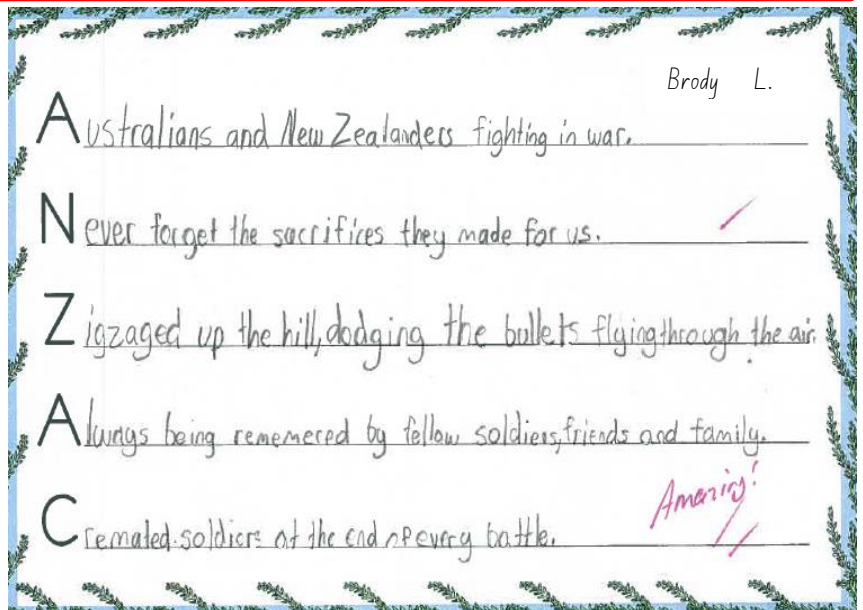 Brody L.
Australians and New Zealanders fighting in war.
Never forget the sacrifices they made for us.
Zigzaged up the hill, dodging the bullets flying through the air.
Always being rememered by fellow soldiers, friends and family.
Amazing!
Cremated soldiers at the end of every battle.